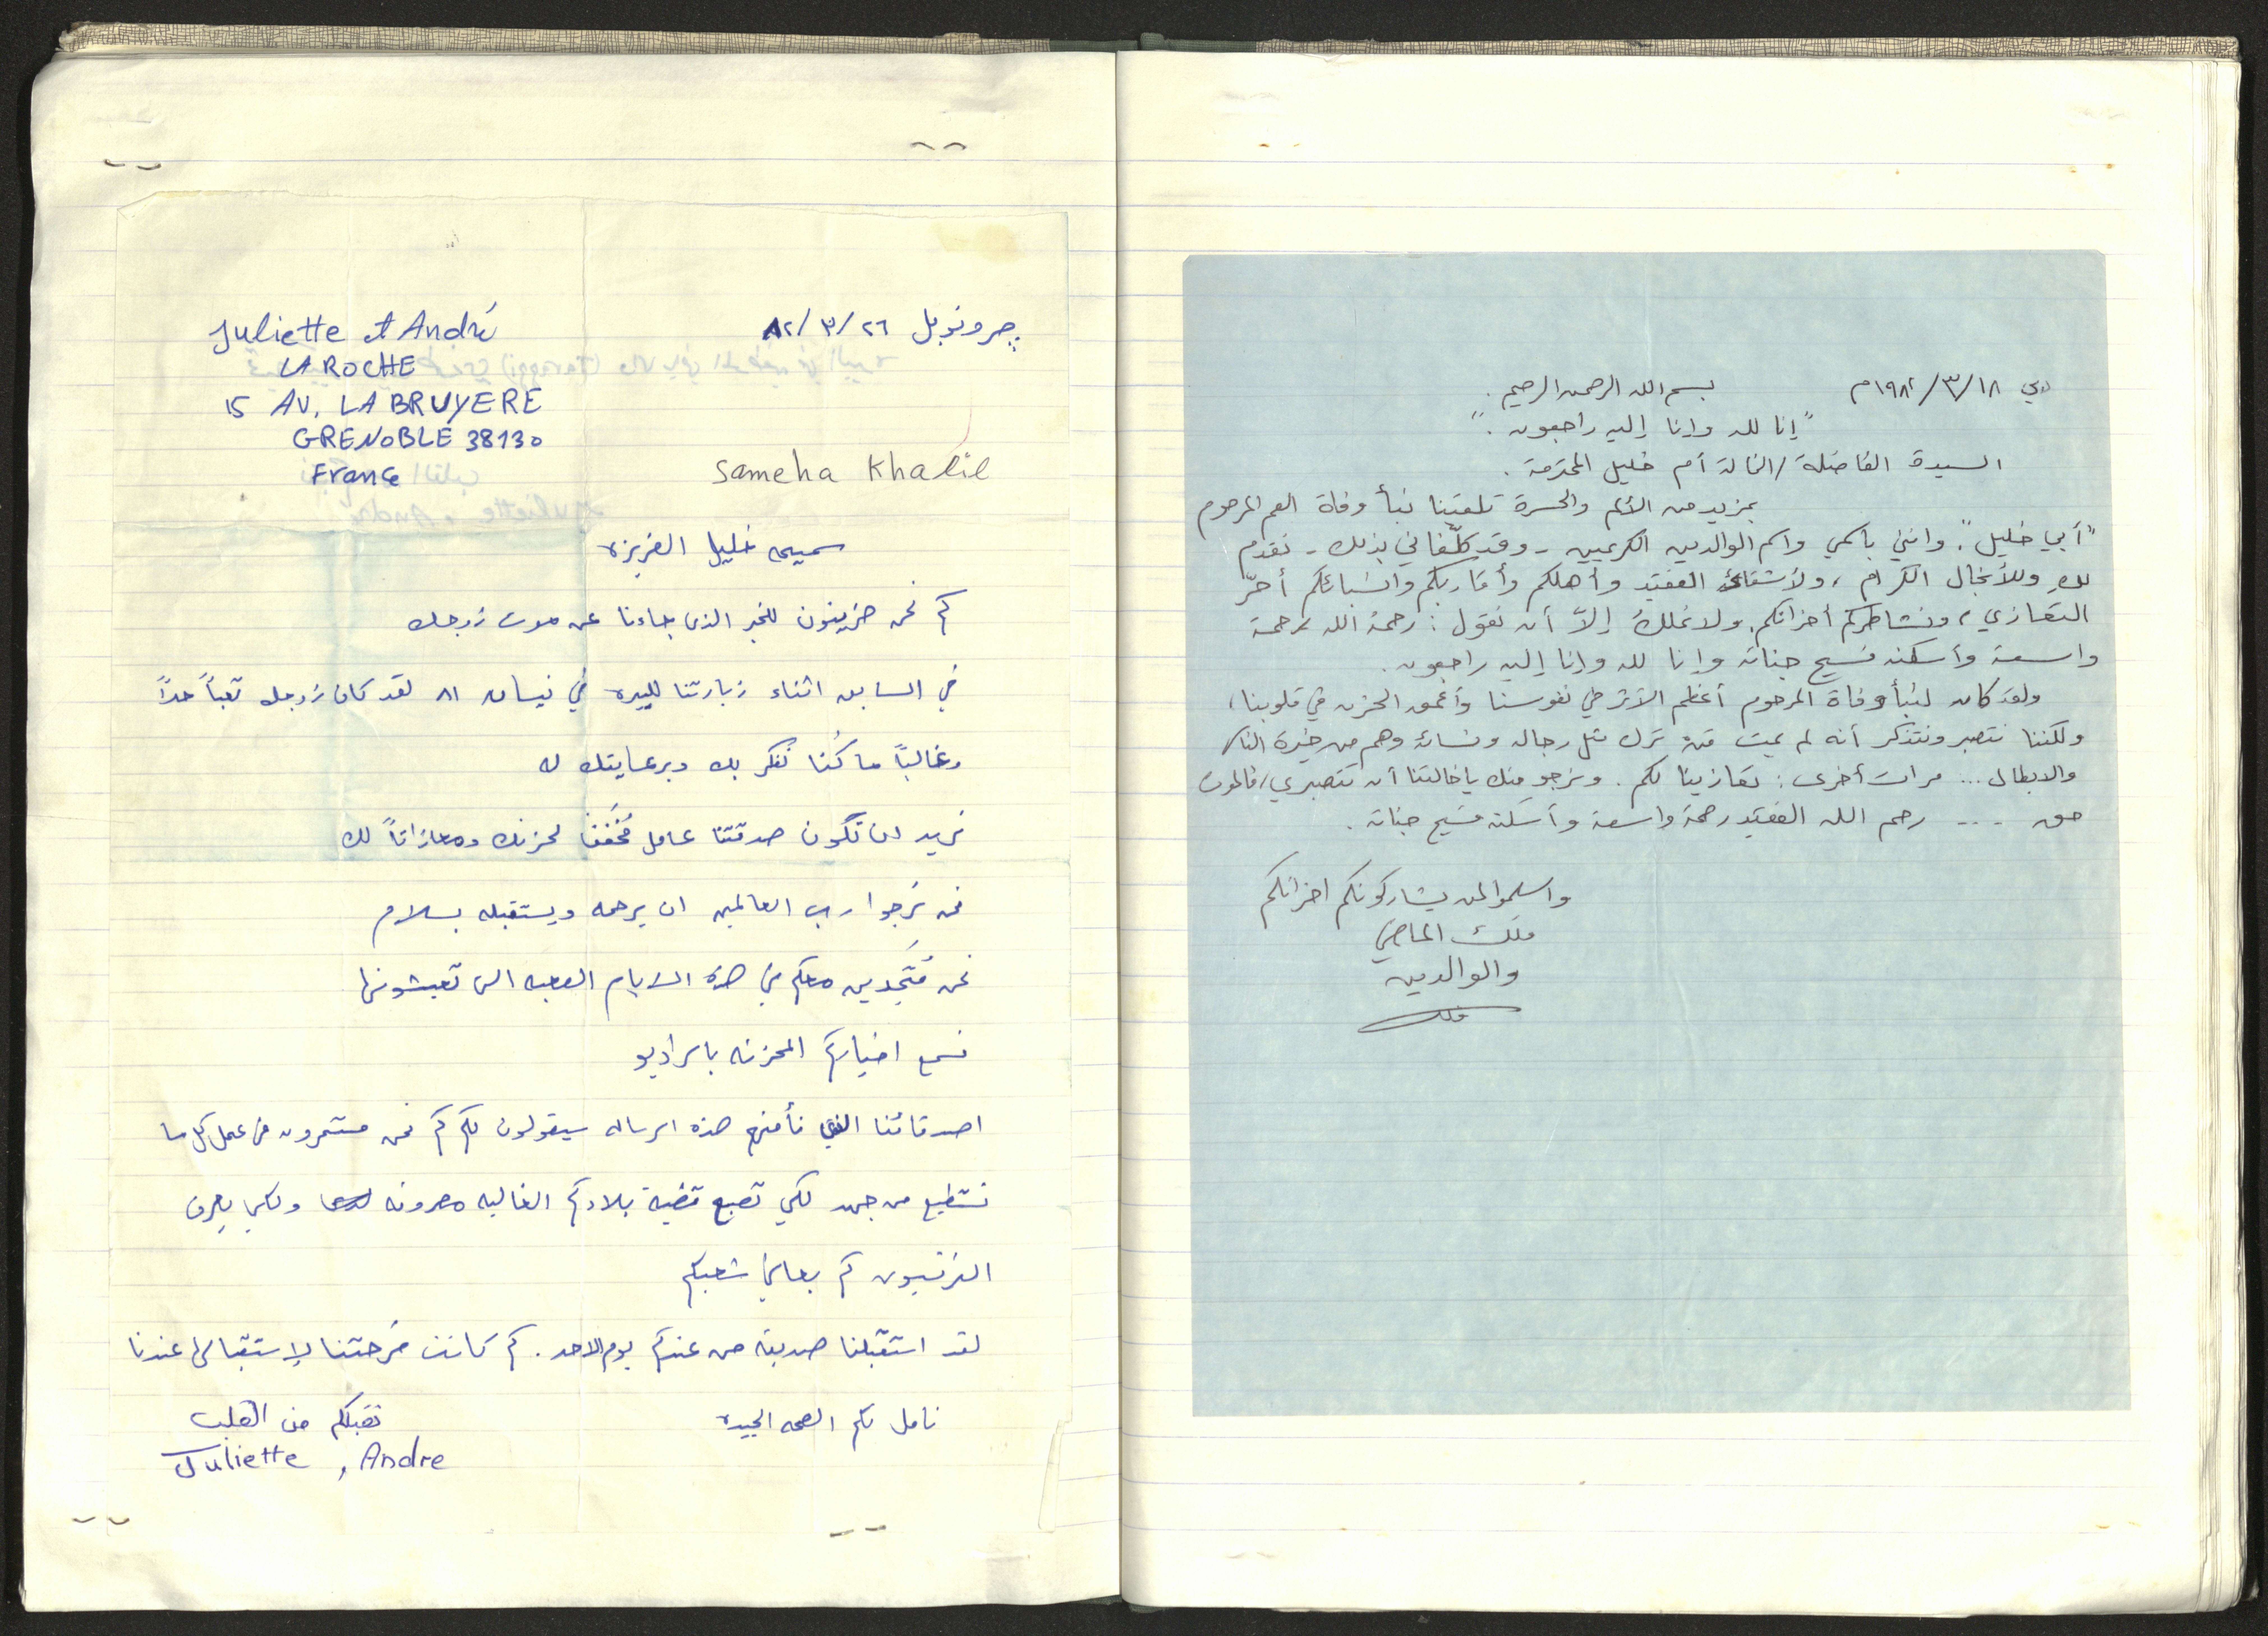 Juliette et André
LA ROCHE
15 AV. LA BRUYERE
GRENOBLE 38130
France
جرونوبل ٢٦/٣/٨٢
Sameha Khalil
سميحه خليل العزيزه
كم نحن حزينون للخبر الذي جاءنا عن موت زوجك
في السابق اثناء زيارتنا للبيره في نيسان ٨١ لقد كان زوجك تعباً جداً
وغالباً ما كُنا نفكر بك وبرعايتك له
نريد ان تكون صدقتنا عامل مُخففا لحزنك ومعازاتاً لك
نحن نرجوا رب العالمين ان يرحمه ويستقبله بسلام
نحن مُتحدين معكم في هذه الايام الصعبه التي تعيشونها
نسمع اخباركم المحزنه بالراديو
اصدقائنا الذي نأمنهم هذه الرساله سيقولون لكم كم نحن مستمرون في عمل كل ما
نستطيع من جهد لكي تصبح قضية بلادكم الغاليه معروفه ولكي يعرف
الفرنسيون كم يعاني شعبكم
لقد استقبلنا صديقه من عندكم يوم الاحد. كم كانت فرحتنا لإستقبالها عندنا
نامل لكم الصحه الجيده
نقبلكم من القلب
Juliette , Andre
دبي ١٨/٣/١٩٨٢م
بسم الله الرحمن الرحيم.
"إنا لله وإنا إليه راجعون."
السيدة الفاضلة/الخالة أم خليل المحترمة.
بمزيد من الألم والحسرة تلقينا نبأ وفاة العم المرحوم
"أبي خليل". وانني باسمي واسم الوالدين الكريمين - وقد كلّفاني بذلك - نقدم
لك وللأنجال الكرام، ولأشقاء الفقيد وأهلكم وأقاربكم وانسبائكم أحرّ
التعازي، ونشاطركم أحزانكم. ولا نملك إلاّ أن نقول: رحمه الله رحمة
واسعة وأسكنه فسيح جناته وإنا لله وإنا إليه راجعون.
ولقد كان لنبأ وفاة المرحوم أعظم الأثر في نفوسنا وأعمق الحزن في قلوبنا،
ولكننا نتصبر ونتذكر أنه لم يمت من ترك مثل رجاله ونسائه وهم من خيرة الناس
والابطال ... مرات أخرى: تعازينا لكم. ونرجو منك يا خالتنا أن تتصبري، فالموت
حق ... رحم الله الفقيد رحمة واسعة وأسكنه فسيح جناته.
واسلموا لمن يشاركونكم احزانكم
ملك الماضي
والوالدين
ملك